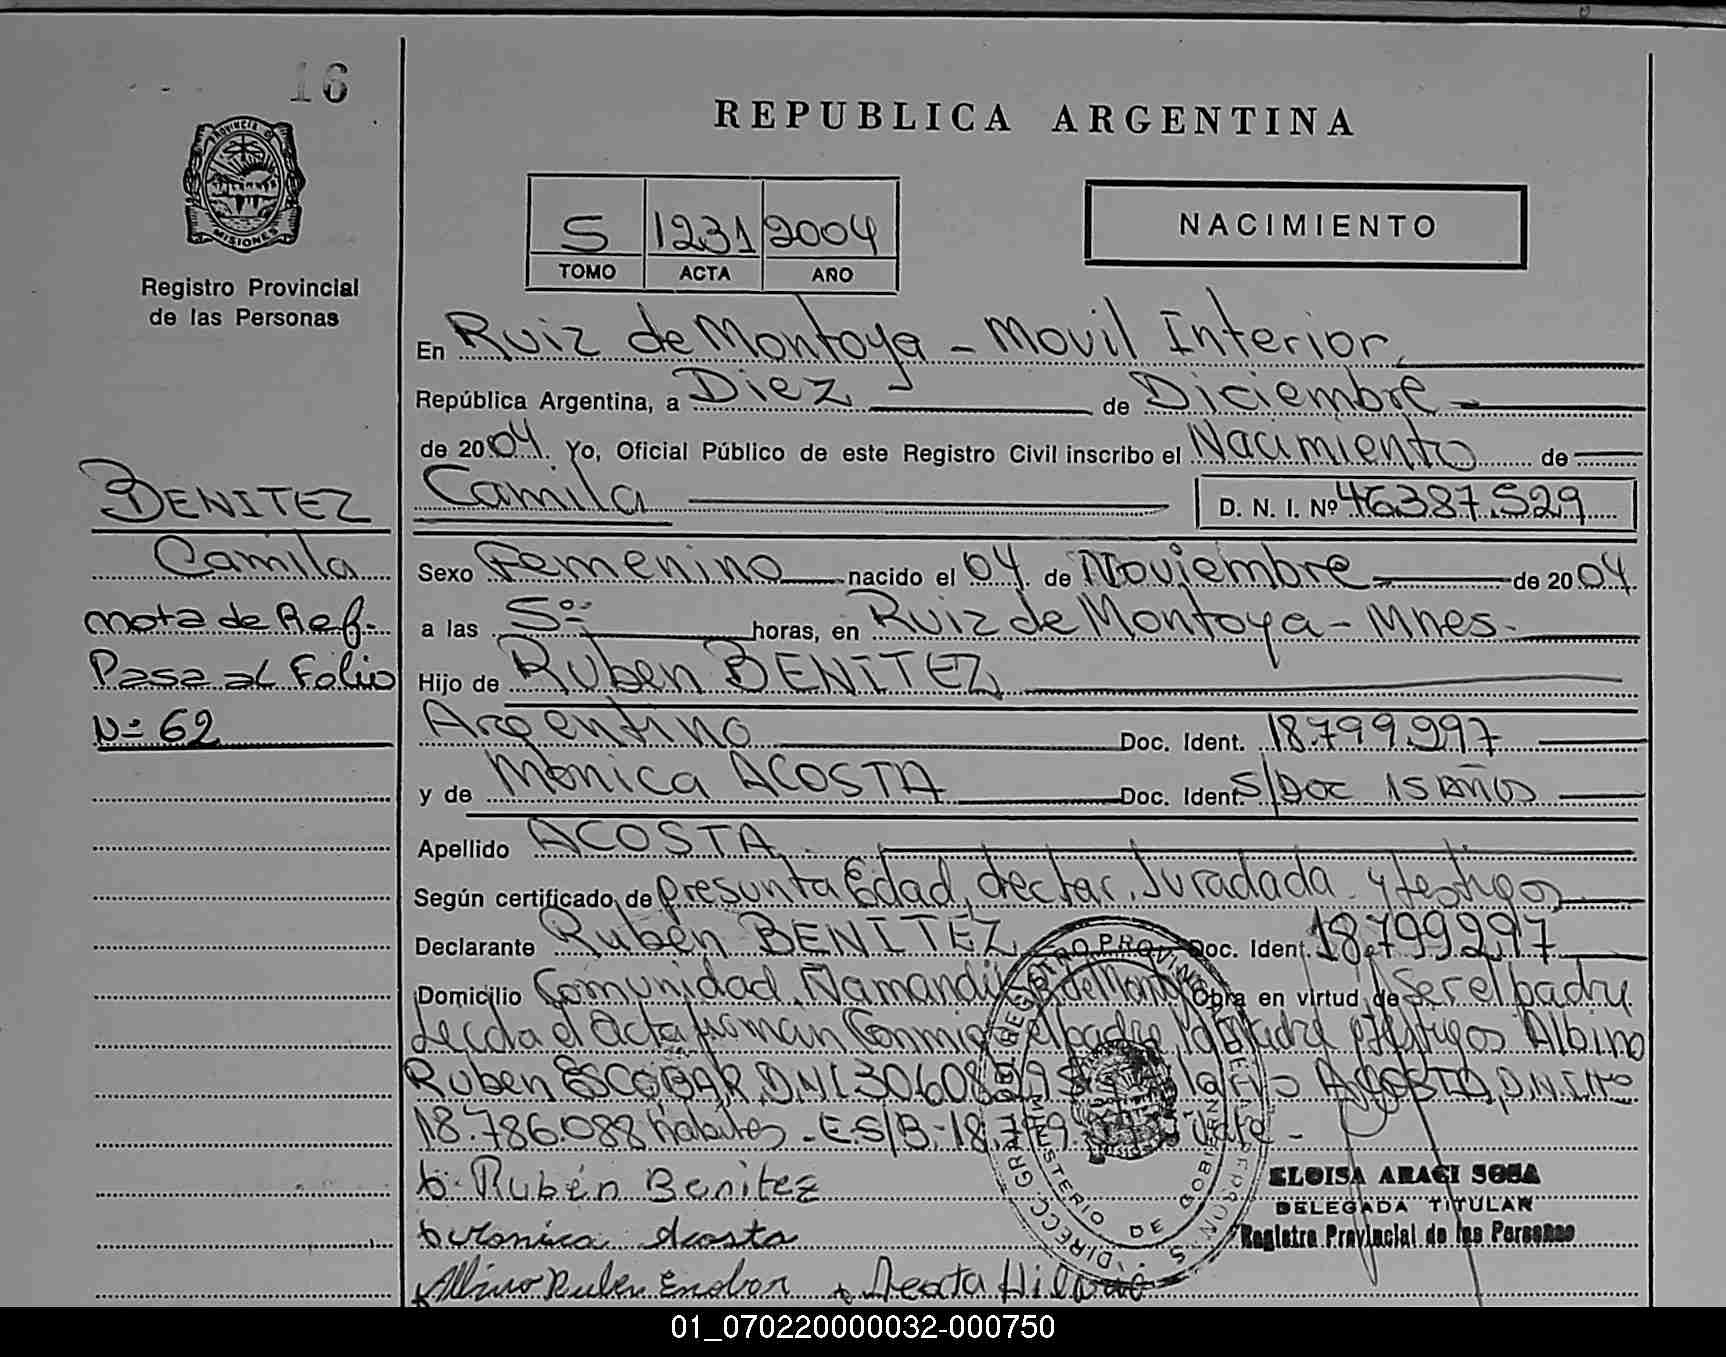 16
PROVINCIA DE
MISIONES
Registro Provincial
de las Personas
REPUBLICA ARGENTINA
5 1231 2004
TOMO ACTA AÑO
NACIMIENTO
En Ruiz de Montoya - Movil Interior,
República Argentina, a Diez de Diciembre
de 2004. Yo, Oficial Público de este Registro Civil inscribo el Nacimiento de
Camila D. N. I. Nº 46.387.529
BENITEZ
Camila
nota de Ref.
Pasa al Folio
Nº 62
Sexo Femenino nacido el 04 de Noviembre de 2004.
a las 5º: horas, en Ruiz de Montoya - Mnes.
Hijo de Ruben BENITEZ
Argentino Doc. Ident. 18.799.297
y de Monica ACOSTA Doc. Ident. S/Doc 15 Años
Apellido ACOSTA
Según certificado de presunta Edad, dectar. Juradada y testigos
Declarante Rubén BENITEZ Doc. Ident. 18.799297
Domicilio Comunidad Ñamandú Obra en virtud de Ser el padre
Leida el Acta firman Conmigo el padre, la Madre y testigos Albino
Ruben ESCOBAR, D.N.I. ACOSTA, D.N.I. Nº
18.786.088 habiles - E.S/B.- Vale -
Rubén Benitez
Acosta
Albino Ruben Acosta
DIRECC. GRAL. DEL REGISTRO PROVINCIAL DE LAS PERSONAS
MINISTERIO DE GOBIERNO
ELOISA ARAGI SOSA
DELEGADA TITULAR
Registro Provincial de las Personas
01_070220000032-000750